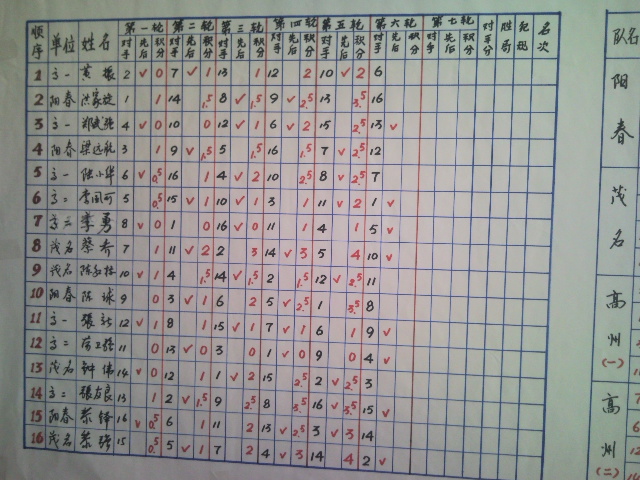 顺序 单位 姓名 第一轮 第二轮 第三轮 第四轮 第五轮 第六轮 第七轮 对手分 胜局 犯规 名次
对手 先后 积分 对手 先后 积分 对手 先后 积分 对手 先后 积分 对手 先后 积分 对手 先后 积分 对手 先后 积分
1 高一 黄 2 ✓ 0 7 ✓ 1 13 1 12 2 10 ✓ 2 6
2 阳春 1 1 14 1.5 8 ✓ 1.5 9 ✓ 2.5 13 3.5 16
3 高一 4 ✓ 0 10 0 12 ✓ 1 6 ✓ 2 15 2.5 13 ✓
4 阳春 梁远航 3 1 9 ✓ 1.5 5 1.5 16 1.5 7 ✓ 2.5 12
5 高一 陈小华 6 ✓ 0.5 16 1 4 ✓ 2 10 2.5 8 ✓ 2.5 7
6 高二 李国可 5 0.5 15 ✓ 1 10 ✓ 1 3 1 11 ✓ 2 1 ✓
7 高二 李勇 8 ✓ 0 1 0 16 ✓ 0 11 1 4 1 5 ✓
8 茂名 蔡乔 7 1 11 ✓ 2 2 3 14 ✓ 3 5 4 10 ✓
9 茂名 10 ✓ 1 4 1.5 14 ✓ 1.5 2 1.5 12 ✓ 2.5 11
10 阳春 陈球 9 0 3 ✓ 1 6 2 5 ✓ 2.5 1 3.5 8
11 高一 张 12 ✓ 1 8 1 15 ✓ 1 7 ✓ 1 6 1 9 ✓
12 高二 11 0 13 ✓ 0 3 0 1 ✓ 0 9 0 4 ✓
13 茂名 钟伟 14 ✓ 0 12 1 1 ✓ 2 15 2.5 2 ✓ 2.5 3
14 高二 张友良 13 1 2 ✓ 1.5 9 2.5 8 3.5 16 ✓ 3.5 15 ✓
15 阳春 16 ✓ 0.5 6 1 11 2 13 ✓ 2.5 3 ✓ 3 14
16 茂名 15 0.5 5 ✓ 1 7 2 4 ✓ 3 14 4 2 ✓
队名
阳春
茂名
高州(一)
高州(二)